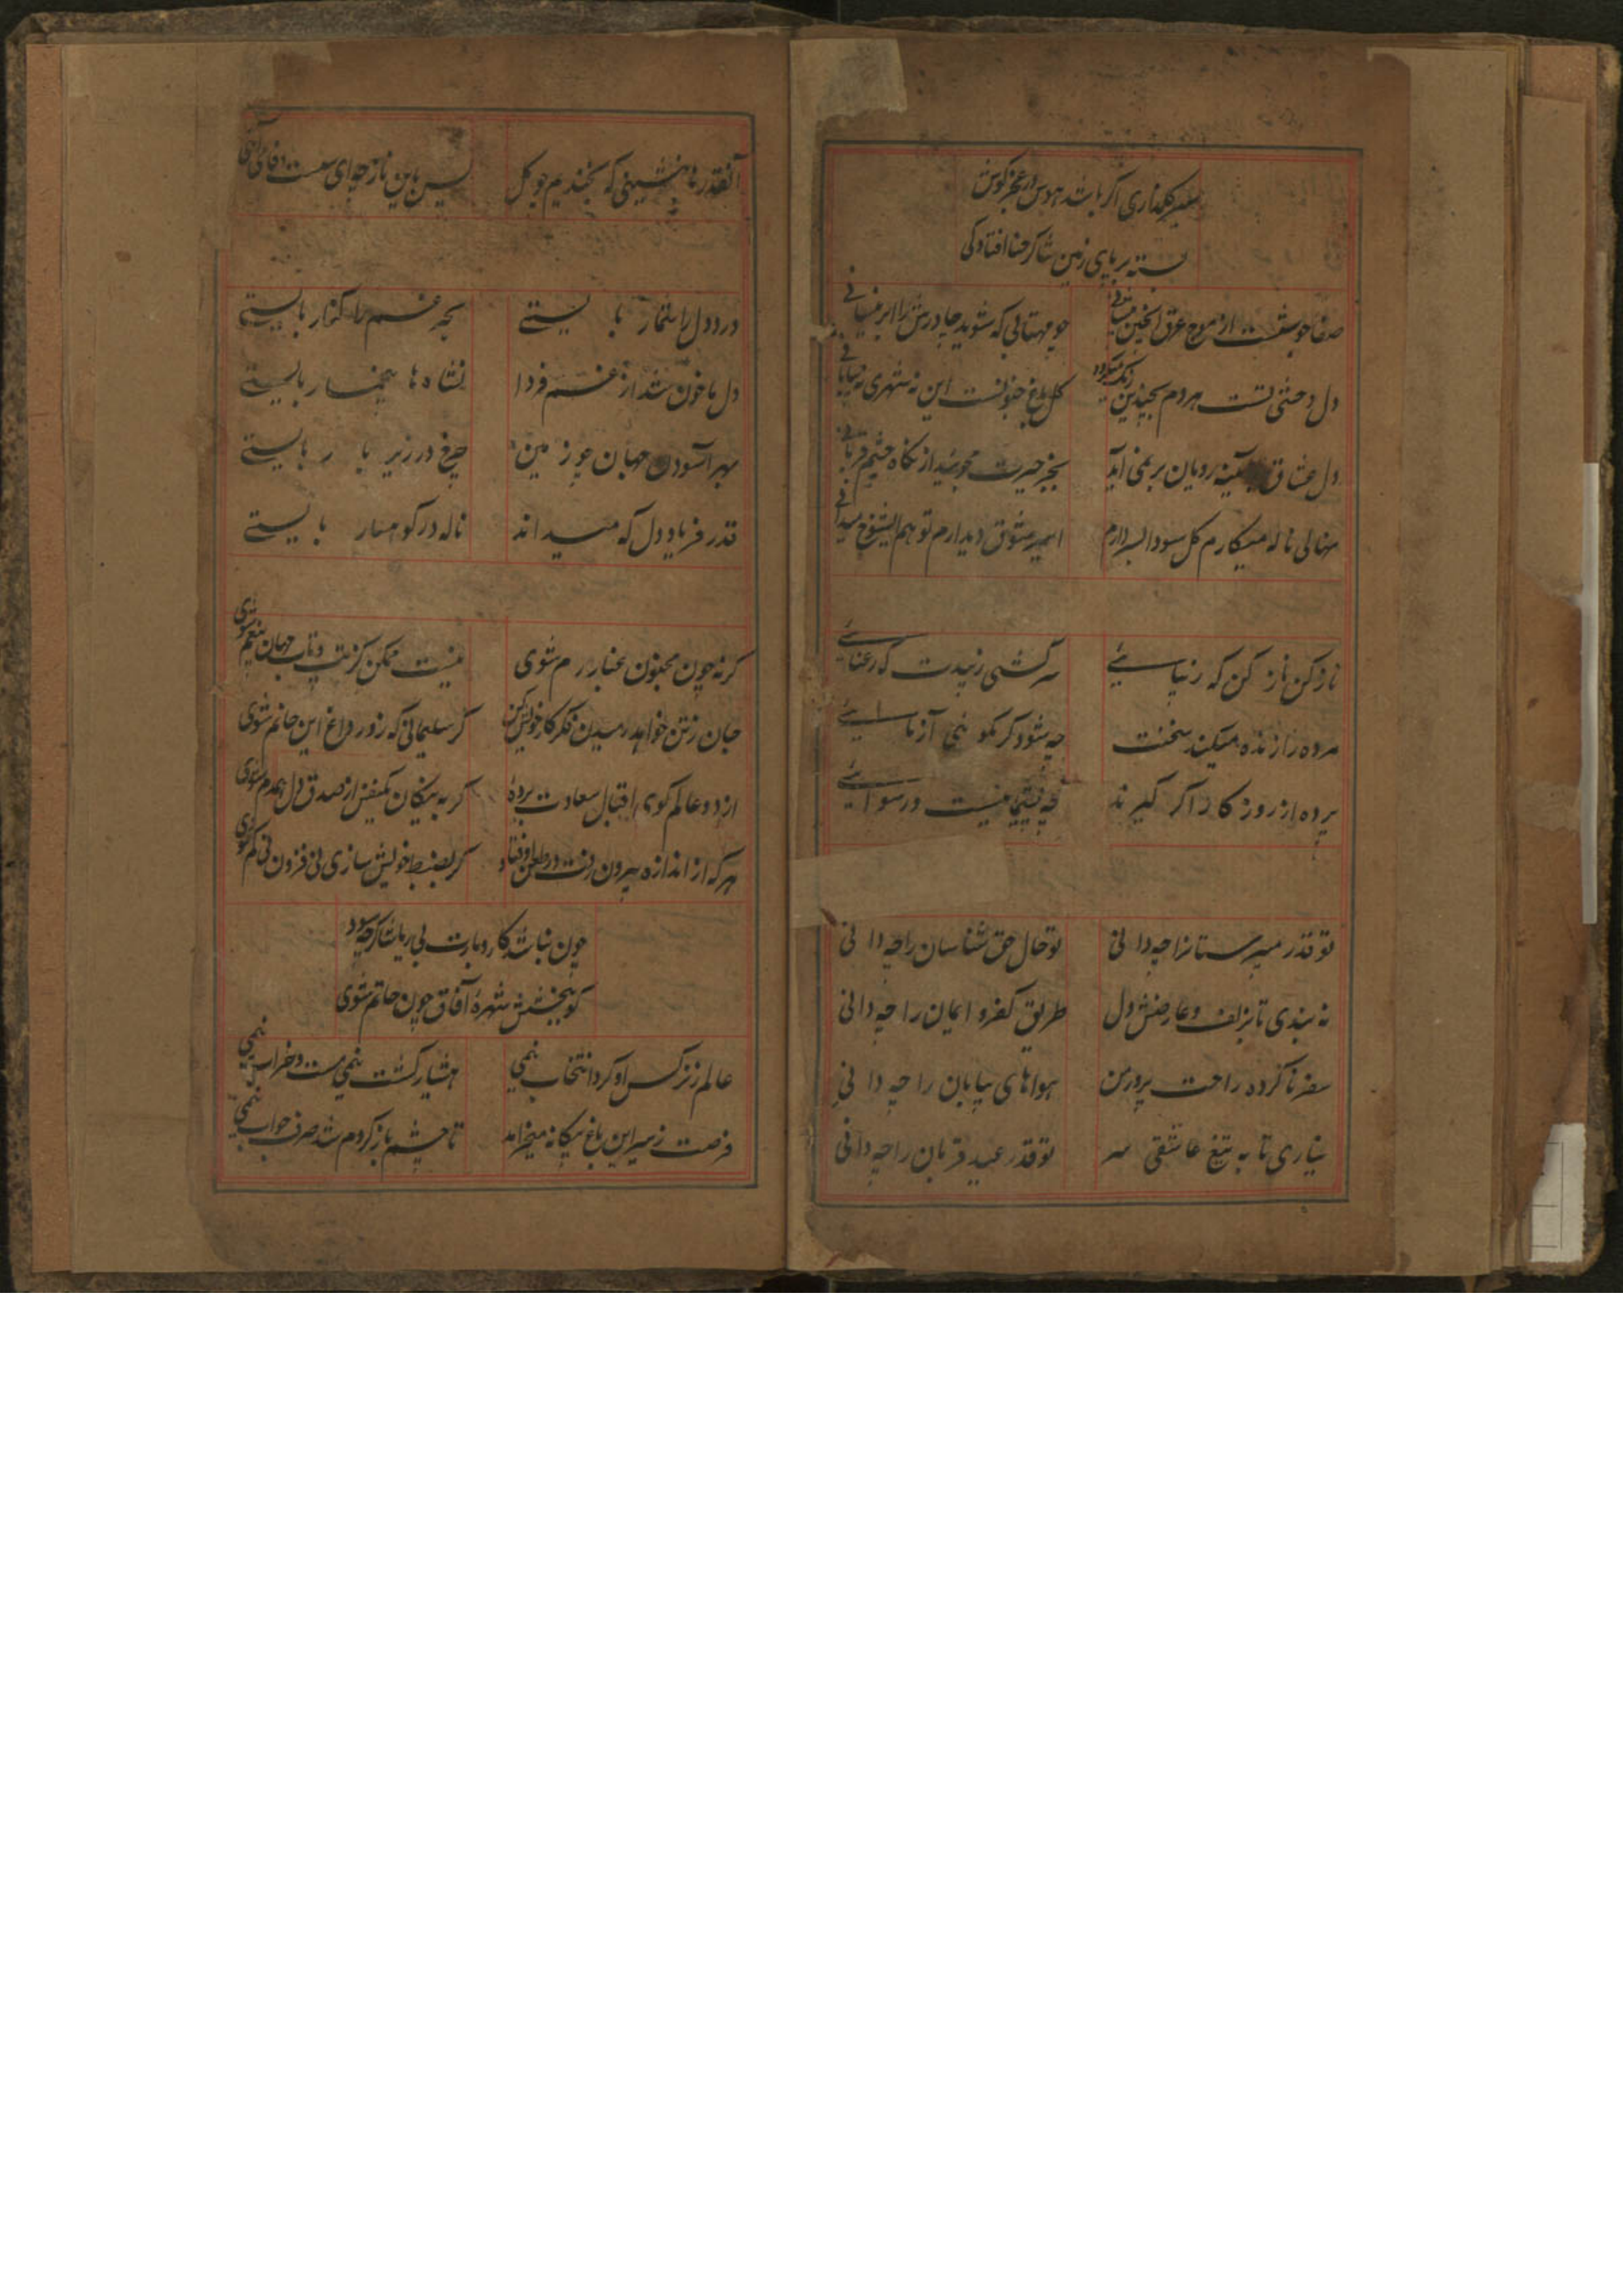 سیر گلزاری اگر باشد هوس در عجز کوش
بسته بر پای زمین شاکر حنا افتادگی
صفا جوشست از موج عرق
چو مهتابی که شوید چادرش را ابر
دل وحشی تست هر دم بچندین رنگ میگردد
گل باغ جنونست این نه شهری نه بیابانی
دل عشاق آیینه رویان بر نمی آید
بجز حیرت نجوشید از نگاه چشم قربانی
نهالی ناله میکارم گل سودا بسر دارم
اسیر شوق دیدارم تو هم ایشوخ میدانی
ناز کن ناز کن که زیبایی
سرکشی زیبدت که رعنایی
مرده را زنده میکند سخنت
چه شود گر بگو نمی آزمایی
پرده از روز کار اگر گیرند
چه نیست در رسوایی
تو قدر می پرستانرا چه دانی
تو حال حق شناسان را چه دانی
نه بندی تا بزلف و عارضش دل
طریق کفر و ایمان را چه دانی
سفر ناکرده راحت پرور من
هواهای بیابان را چه دانی
نیاری تا به تیغ عاشقی سر
تو قدر عید قربان را چه دانی
آنقدر نشینی که بخندیم چو گل
باین ناز چه ای
درد دل را شمار بایستی
بحر غم را کنار بایستی
دل ما خون شد از غم فردا
نشاه ها بیخمار بایستی
بهر آسودن جهان چو زمین
چرخ در زیر بار بایستی
قدر فریاد دل که میداند
ناله در کوهسار بایستی
گر نه چون مجنون غبار رم شوی
نیست ممکن کز تب و تاب جهان بیغم شوی
جان ز تن خواهد رمیدن فکر کار خویش کن
گر سلیمانی که زور داغ این خاتم شوی
از دو عالم گوی اقبال سعادت برده
گر به نیکان یکنفس از صدق دل همدم شوی
هر که از اندازه بیرون رفت در طعن اوفتاد
گر بضبط خویش سازی نی فزون نی کم شوی
چون نباشد کاروبارت بی ریا شاکر چه سود
گو ببخشش شهرهٔ آفاق چون حاتم شوی
عالم ز نرگس او کرد انتخاب نیمی
هشیار گشت نیمی مست و خراب نیمی
فرصت ز سیر این باغ بیگانه میخرامد
تا چشم باز کردم شد صرف خواب نیمی